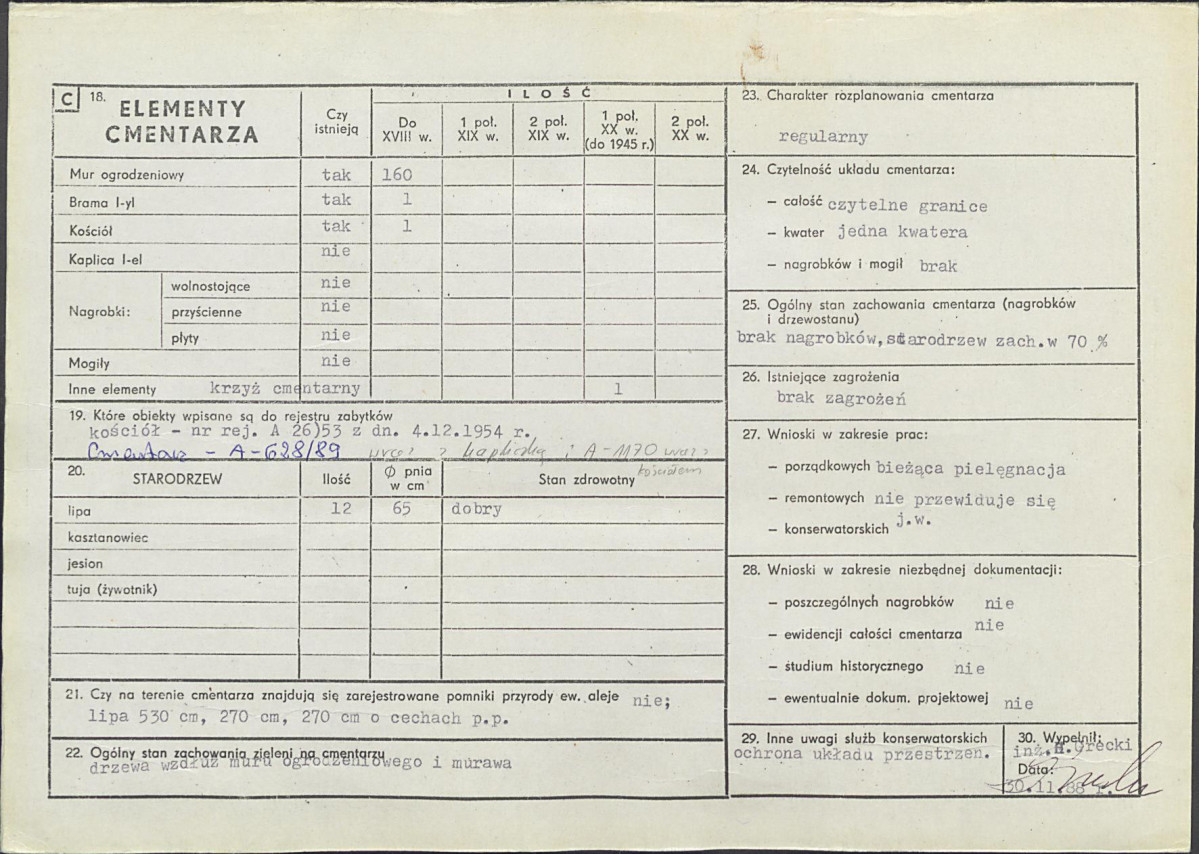 C 18. ELEMENTY CMENTARZA
Czy istnieją
ILOŚĆ
Do XVIII w.
1 poł. XIX w.
2 poł. XIX w.
1 poł. XX w. (do 1945 r.)
2 poł. XX w.
Mur ogrodzeniowy tak 160
Brama I-yl tak 1
Kościół tak 1
Kaplica I-el nie
Nagrobki:
wolnostojące nie
przyścienne nie
płyty nie
Mogiły nie
Inne elementy krzyż cmentarny 1
19. Które obiekty wpisane są do rejestru zabytków
kościół - nr rej. A 26)53 z dn. 4.12.1954 r.
Cmentarz - A-628/89 kapliczką i A-1170 kościołem
20. STARODRZEW Ilość Ø pnia w cm Stan zdrowotny
lipa 12 65 dobry
kasztanowiec
jesion
tuja (żywotnik)
21. Czy na terenie cmentarza znajdują się zarejestrowane pomniki przyrody ew. aleje nie;
lipa 530 cm, 270 cm, 270 cm o cechach p.p.
22. Ogólny stan zachowania zieleni na cmentarzu
drzewa wzdłuż muru ogrodzeniowego i murawa
23. Charakter rozplanowania cmentarza
regularny
24. Czytelność układu cmentarza:
– całość czytelne granice
– kwater jedna kwatera
– nagrobków i mogił brak
25. Ogólny stan zachowania cmentarza (nagrobków
i drzewostanu)
brak nagrobków, starodrzew zach.w 70 %
26. Istniejące zagrożenia
brak zagrożeń
27. Wnioski w zakresie prac:
– porządkowych bieżąca pielęgnacja
– remontowych nie przewiduje się
– konserwatorskich j.w.
28. Wnioski w zakresie niezbędnej dokumentacji:
– poszczególnych nagrobków nie
– ewidencji całości cmentarza nie
– studium historycznego nie
– ewentualnie dokum. projektowej nie
29. Inne uwagi służb konserwatorskich
ochrona układu przestrzen.
30. Wypełnił:
inż.H.Grecki
Data:
30.11.88 r.